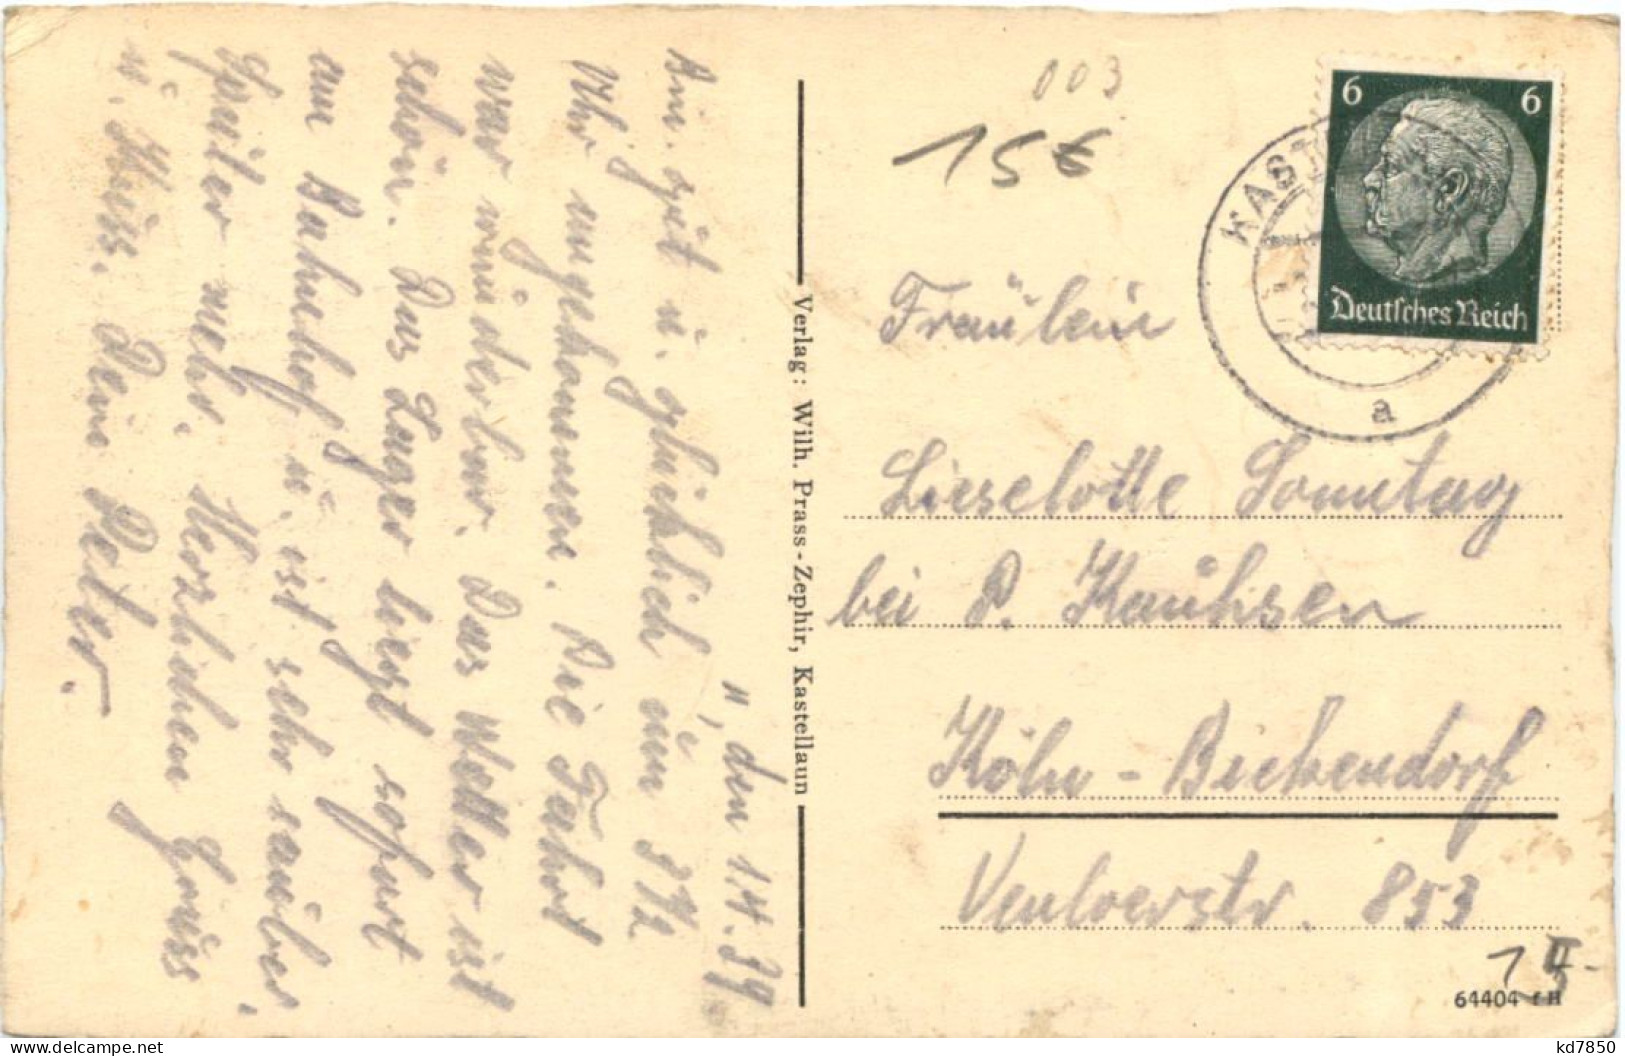 ", den 1.4.39
Bin gut u. glücklich um 3 1/2
Uhr angekommen. Die Fahrt
war wunderbar. Das Wetter ist
schön. Das Lager liegt sofort
am Bahnhof u. ist sehr sauber,
später mehr. Herzlichen Gruss
u. Kuss. Dein Peter.
Verlag: Wilh. Prass-Zephir, Kastellaun
003
15€
6 6
Deutsches Reich
KAST
a
Fräulein
Lieselotte Sonntag
bei P. Kauhsen
Köln - Bickendorf
Venloerstr. 853
64404 f H
kd7850